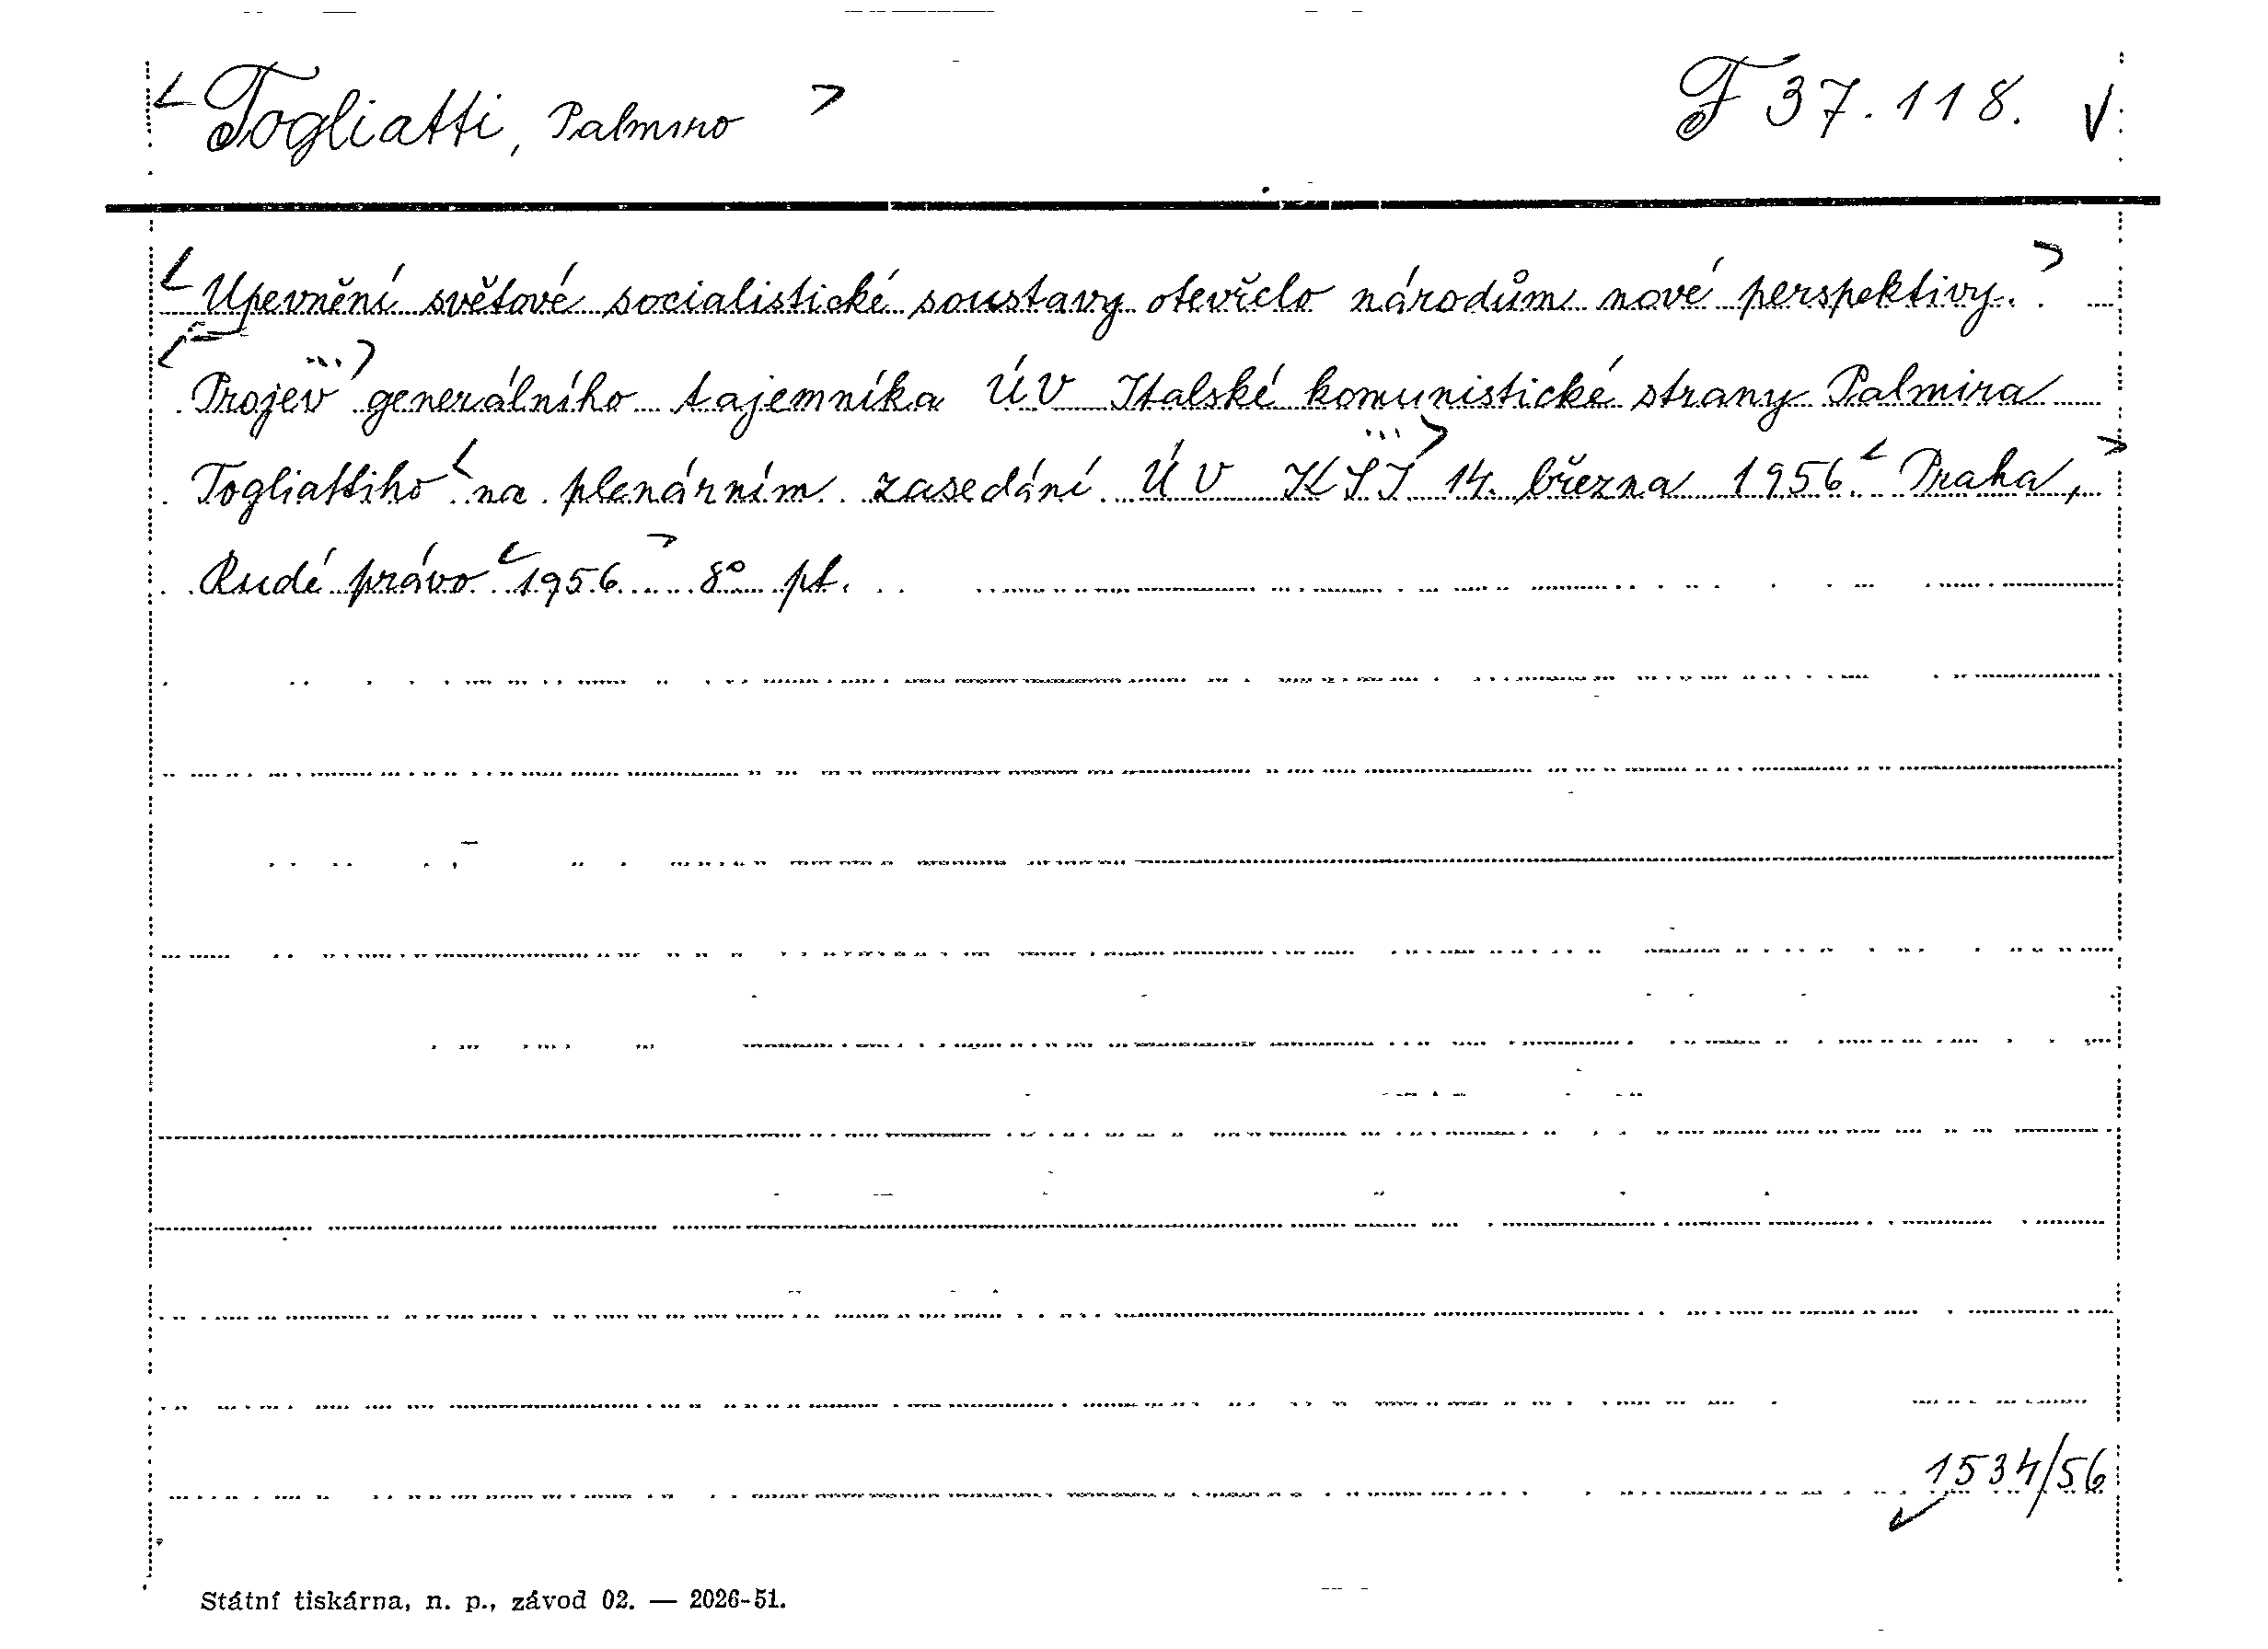 < Togliatti, Palmiro > F 37.118. V
< Upevnění světové socialistické soustavy otevřelo národům nové perspektivy. >
< Projev ...> generálního tajemníka ÚV Italské komunistické strany Palmira
Togliattiho < na plenárním zasedání ÚV KSI ...> 14. března 1956. < Praha, >
Rudé právo < 1956 > 8° pt.
1534/56
Státní tiskárna, n. p., závod 02. — 2026-51.